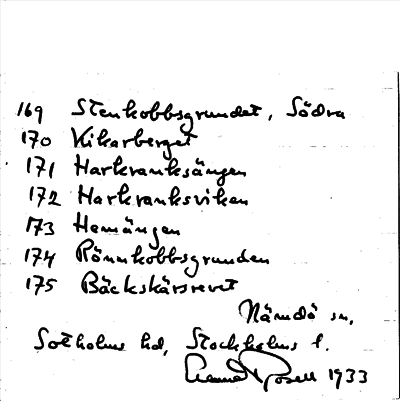 169 Stenkobbsgrundet, Södra
170 Kikarberget
171 Harkranksängen
172 Harkranksviken
173 Hemängen
174 Rönnkobbsgrunden
175 Bäckskärsrevet
Nämdö sn,
Sotholms hd, Stockholms l.
1933